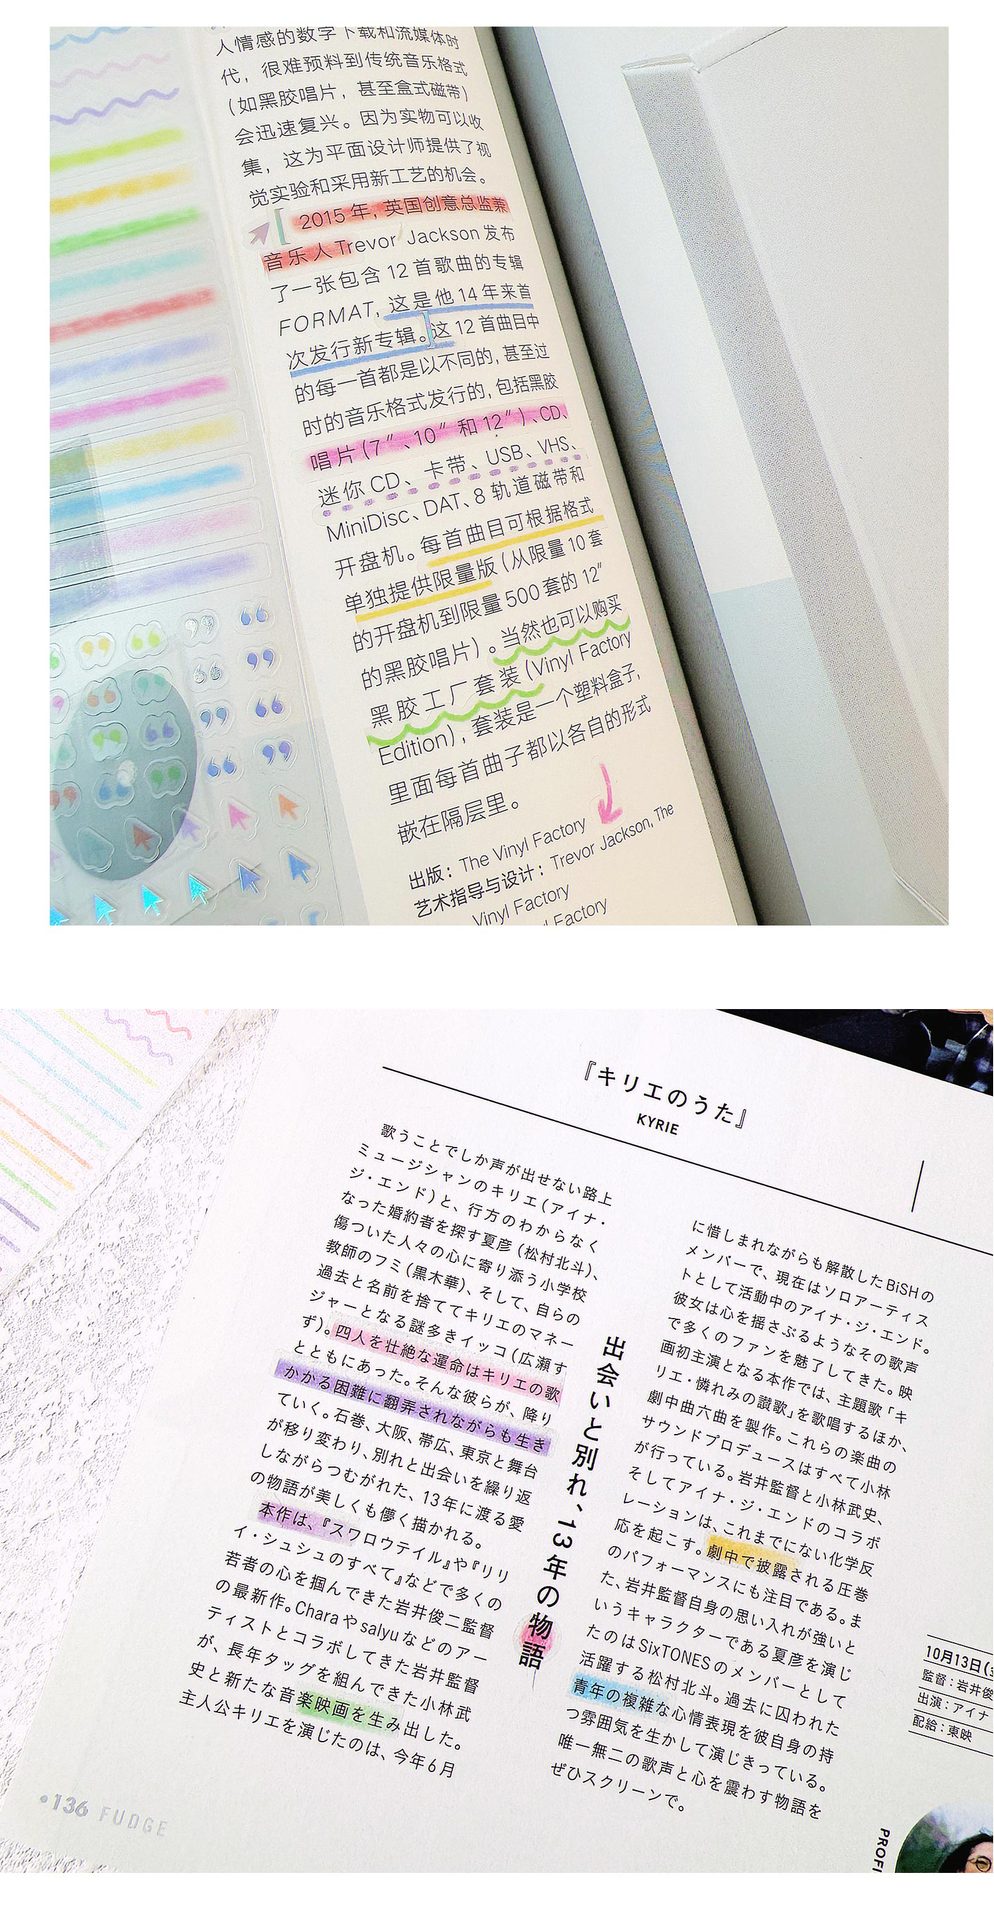 人情感的数字下载和流媒体时
代，很难预料到传统音乐格式
（如黑胶唱片，甚至盒式磁带）
会迅速复兴。因为实物可以收
集，这为平面设计师提供了视
觉实验和采用新工艺的机会。
2015 年，英国创意总监兼
音乐人 Trevor Jackson 发布
了一张包含 12 首歌曲的专辑
FORMAT，这是他 14 年来首
次发行新专辑。这 12 首曲目中
的每一首都是以不同的，甚至过
时的音乐格式发行的，包括黑胶
唱片（7″、10″ 和 12″）、CD、
迷你 CD、卡带、USB、VHS、
MiniDisc、DAT、8 轨道磁带和
开盘机。每首曲目可根据格式
单独提供限量版（从限量 10 套
的开盘机到限量 500 套的 12″
的黑胶唱片）。当然也可以购买
黑胶工厂套装（Vinyl Factory
Edition），套装是一个塑料盒子，
里面每首曲子都以各自的形式
嵌在隔层里。
出版：The Vinyl Factory
艺术指导与设计：Trevor Jackson, The
Vinyl Factory
yl Factory
『キリエのうた』
KYRIE
歌うことでしか声が出せない路上
ミュージシャンのキリエ（アイナ・
ジ・エンド）と、行方のわからなく
なった婚約者を探す夏彦（松村北斗）、
傷ついた人々の心に寄り添う小学校
教師のフミ（黒木華）、そして、自らの
過去と名前を捨ててキリエのマネー
ジャーとなる謎多きイッコ（広瀬す
ず）。四人を壮絶な運命はキリエの歌
とともにあった。そんな彼らが、降り
かかる困難に翻弄されながらも生き
ていく。石巻、大阪、帯広、東京と舞台
が移り変わり、別れと出会いを繰り返
しながらつむがれた、13年に渡る愛
の物語が美しくも儚く描かれる。
本作は、『スワロウテイル』や『リリ
イ・シュシュのすべて』などで多くの
若者の心を掴んできた岩井俊二監督
の最新作。Charaやsalyuなどのアー
ティストとコラボしてきた岩井監督
が、長年タッグを組んできた小林武
史と新たな音楽映画を生み出した。
主人公キリエを演じたのは、今年6月
出会いと別れ、13年の物語
に惜しまれながらも解散したBiSHの
メンバーで、現在はソロアーティス
トとして活動中のアイナ・ジ・エンド。
彼女は心を揺さぶるようなその歌声
で多くのファンを魅了してきた。映
画初主演となる本作では、主題歌「キ
リエ・憐れみの讃歌」を歌唱するほか、
劇中曲六曲を製作。これらの楽曲の
サウンドプロデュースはすべて小林
が行っている。岩井監督と小林武史、
そしてアイナ・ジ・エンドのコラボ
レーションは、これまでにない化学反
応を起こす。劇中で披露される圧巻
のパフォーマンスにも注目である。ま
た、岩井監督自身の思い入れが強いと
いうキャラクターである夏彦を演じ
たのはSixTONESのメンバーとして
活躍する松村北斗。過去に囚われた
青年の複雑な心情表現を彼自身の持
つ雰囲気を生かして演じきっている。
唯一無二の歌声と心を震わす物語を
ぜひスクリーンで。
10月13日(
監督：岩井俊
出演：アイナ
配給：東映
PROFI
136 FUDGE